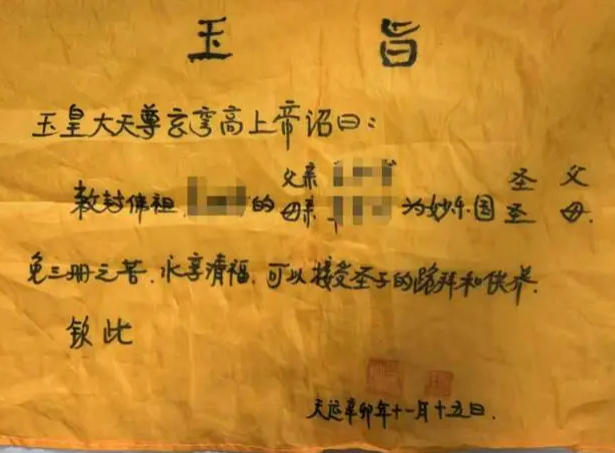 玉旨
玉皇大天尊玄湾高上帝诏曰:
父亲 圣父
敕封佛祖 的母亲 为妙乐国圣母.
免三册之苦.永享清福.可以接受圣子的跪拜和供养.
钦此
天运辛卯年十一月十五日.